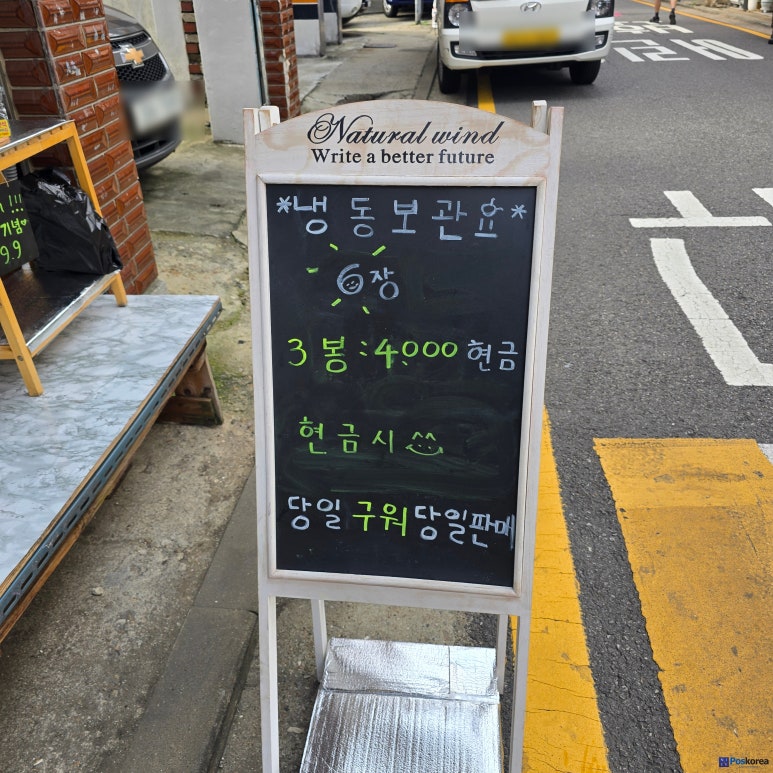 Natural wind
Write a better future
*냉동보관요*
6장
3봉:4.000 현금
현금시
당일 구워 당일판매
!!!
기념♡
9.9
Poskorea